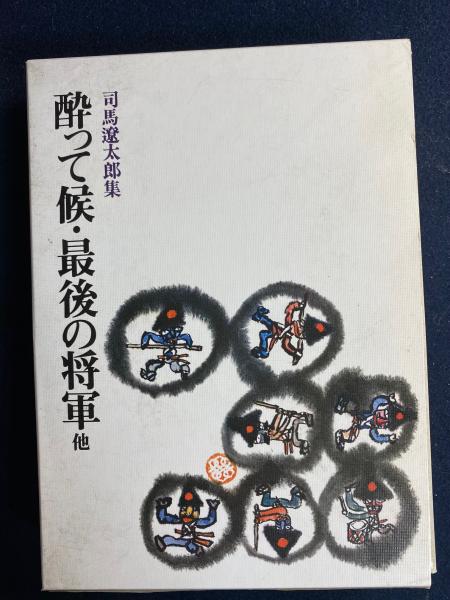 司馬遼太郎集
酔って候・最後の将軍 他